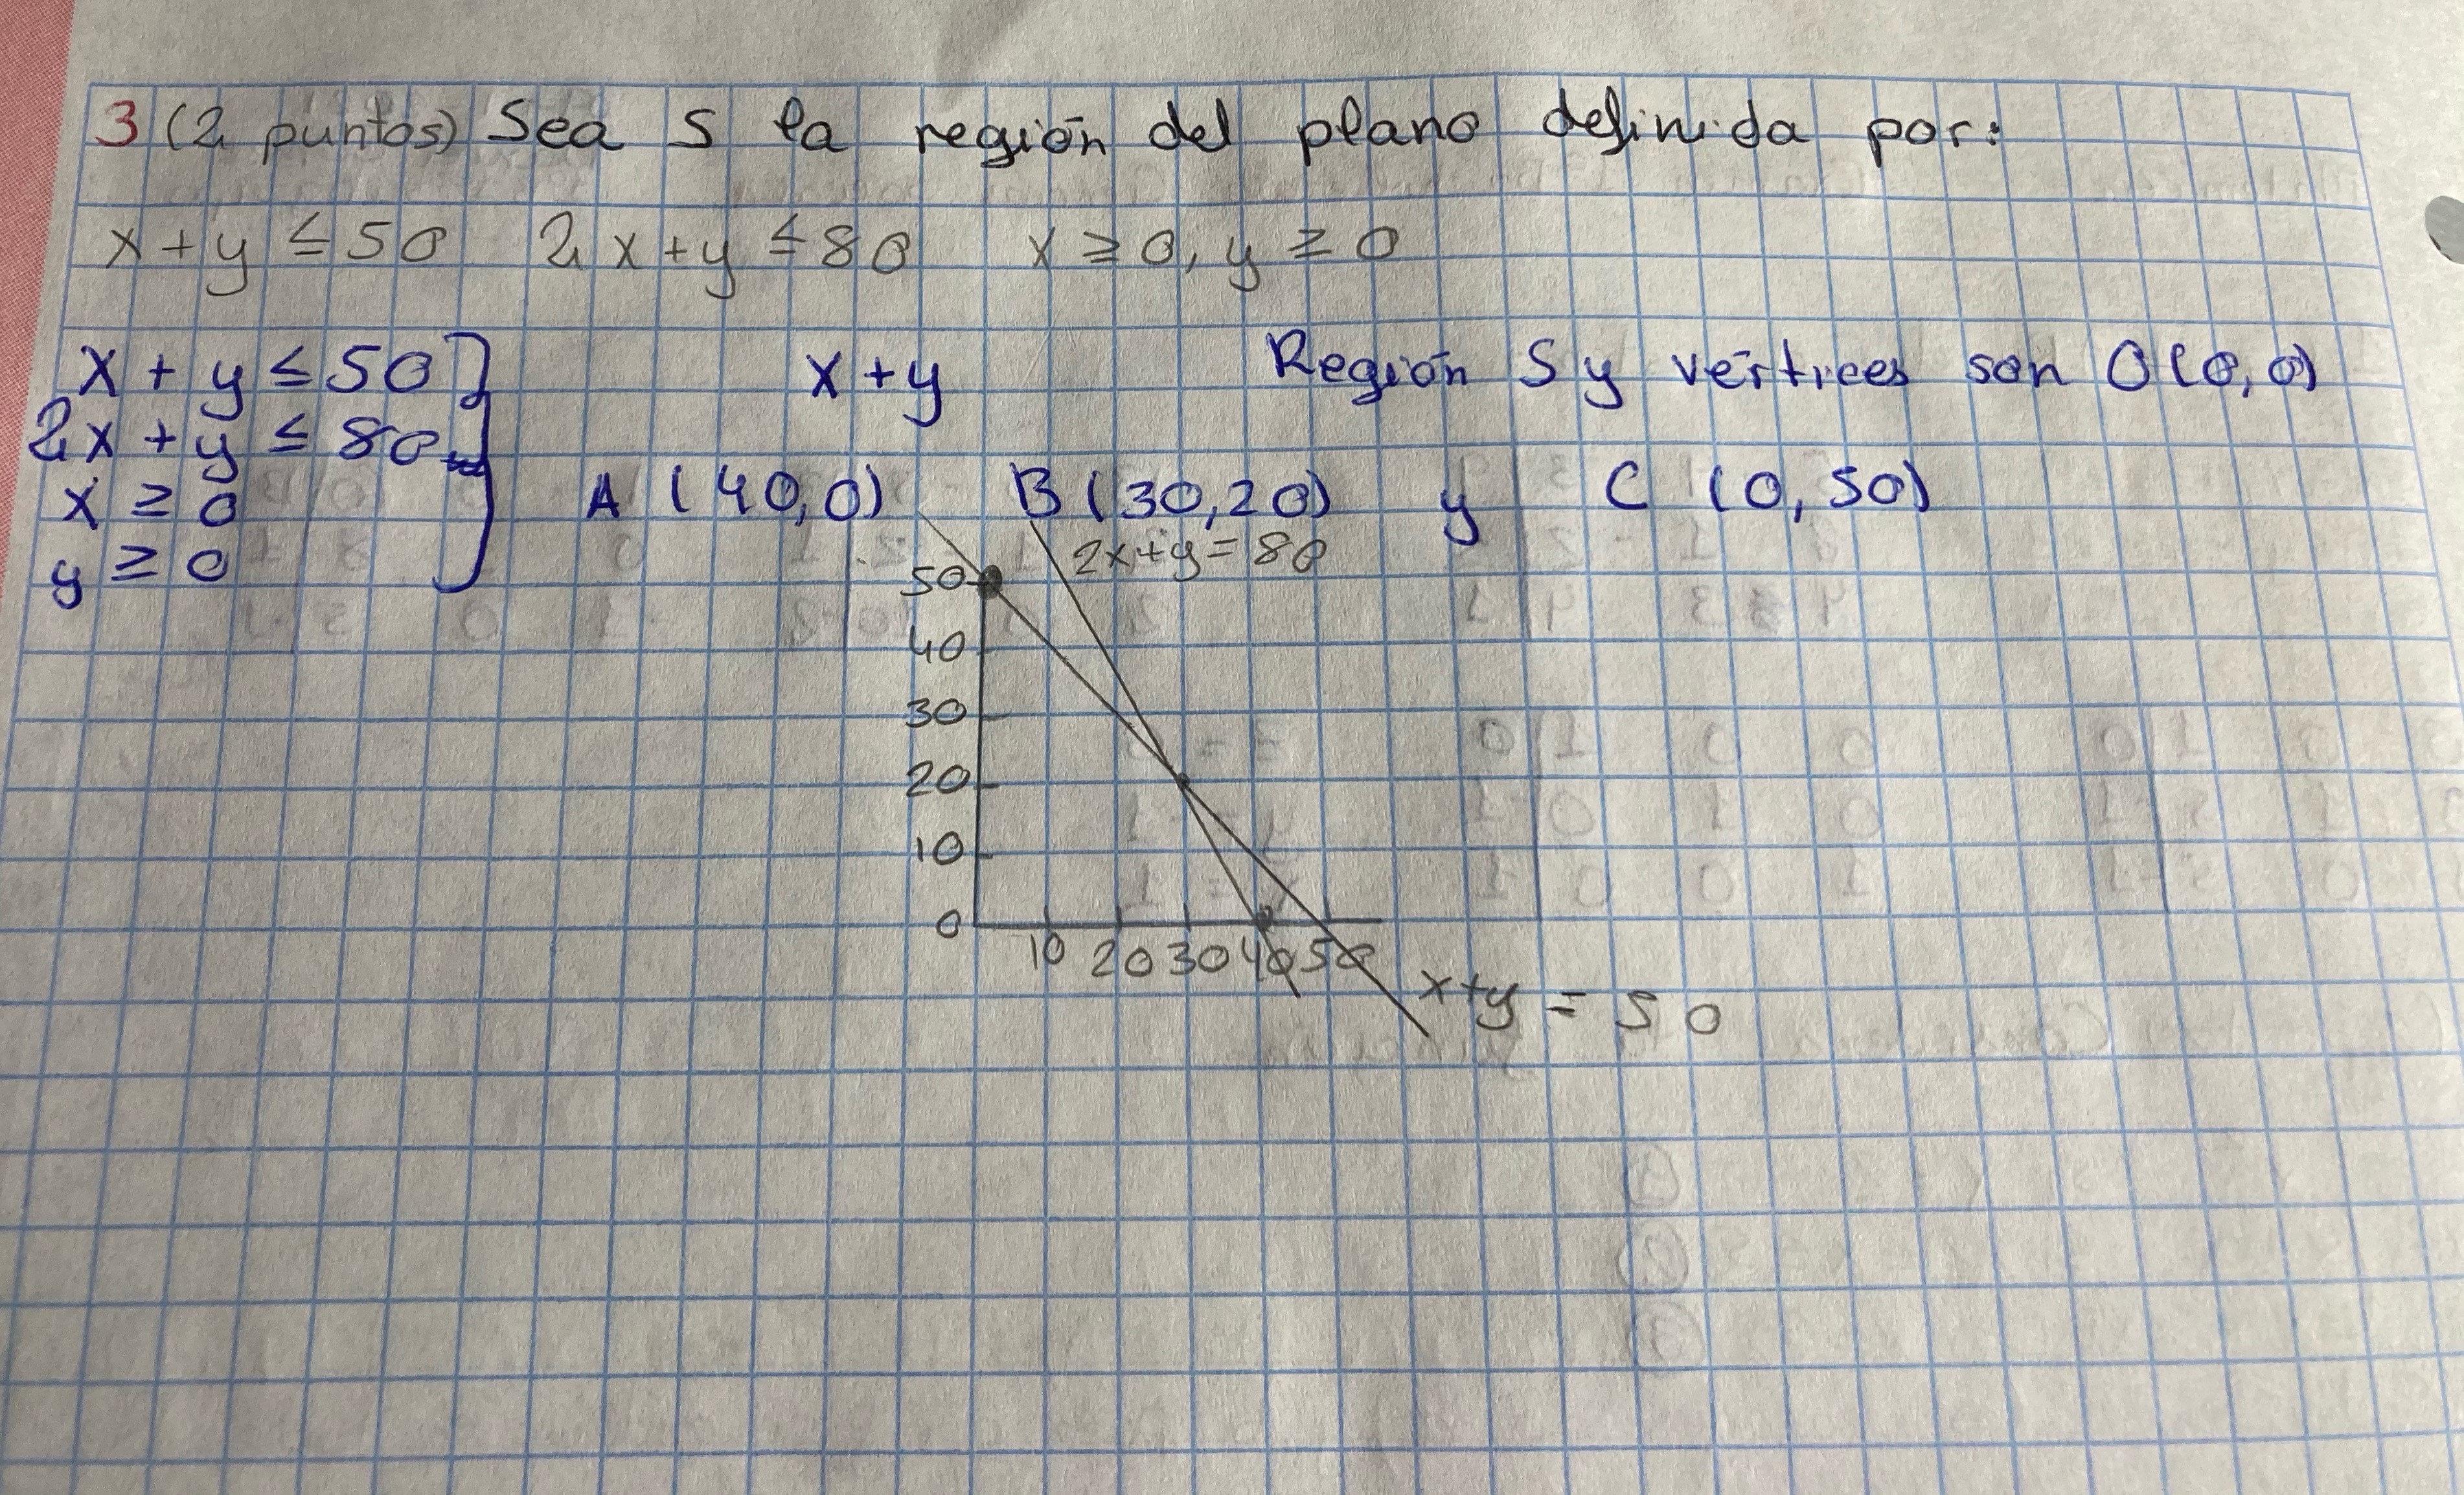 3 (2 puntos) Sea S la región del plano definida por:
x + y ≤ 50 2x + y ≤ 80 x ≥ 0, y ≥ 0
x + y ≤ 50 x + y Región S y vértices son O(0,0)
2x + y ≤ 80
x ≥ 0 A (40,0) B (30,20) y C (0,50)
y ≥ 0
2x+y = 80
50
40
30
20
10
0
10 20 30 40 50
x+y = 50